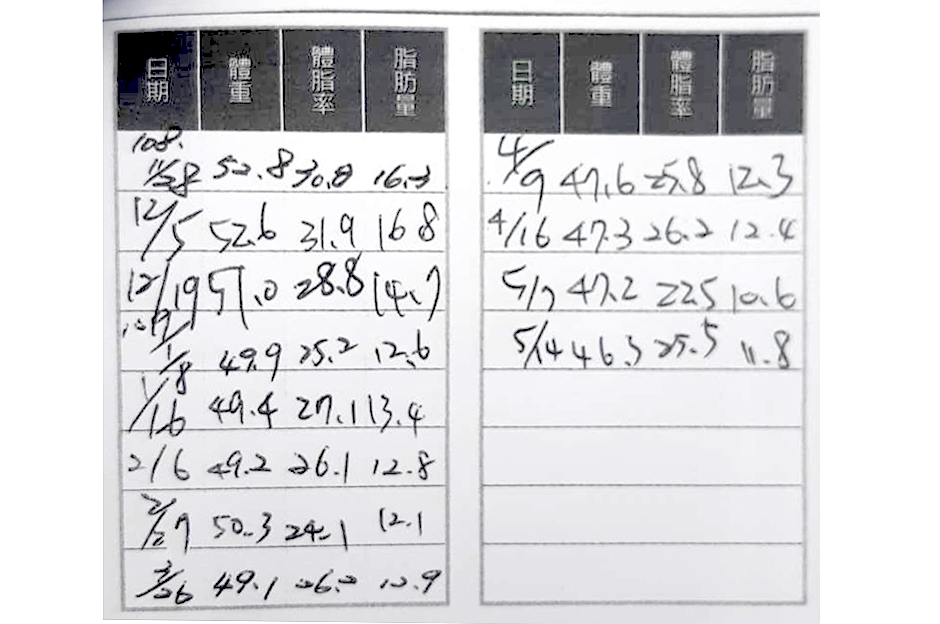 日期 體重 體脂率 脂肪量
108.
11/28 52.8 30.8 16.3
12/5 52.6 31.9 16.8
12/19 51.0 28.8 14.7
109
1/8 49.9 25.2 12.6
1/16 49.4 27.1 13.4
2/6 49.2 26.1 12.8
2/27 50.3 24.1 12.1
3/26 49.1 26.2 12.9
日期 體重 體脂率 脂肪量
4/9 47.6 25.8 12.3
4/16 47.3 26.2 12.4
5/7 47.2 22.5 10.6
5/14 46.3 25.5 11.8